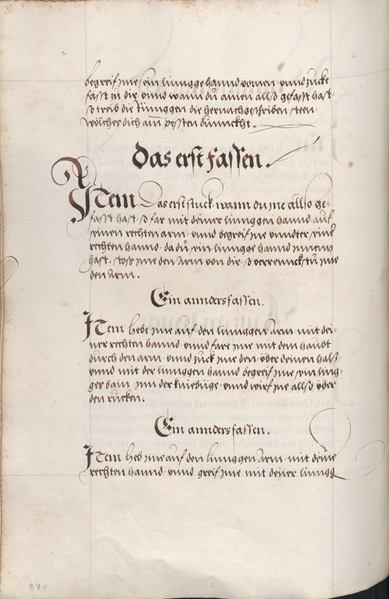 begreif jme sein linngge hannd vornen vnnd zuckh
fasst zu dir vnnd wann du ainen allso gefasst hast
so treib die ringgen die hernachgeschriben steen
wölches dich am pessten dunnckht.
Das erst fassen.
Item Das erst stuck wann du jne allso ge-
fasst hast, so far mit deiner linnggen hannd auf
seinen rechten arm vnnd begreif jme vnndter seiner
rechten hannd, da du sein lingge hannd jnnen
hast, stoss jme den Arm von dir, so verrennckstu jme
den Arm.
Ein annders fassen.
Item hebe jme auf den linnggen Arm mit dei-
ner rechten hannd vnnd fare jme mit dem haubt
durch den arm vnnd zuck jme den vber deinen halss
vnnd mit der linnggen hannd begreif jme sein ling-
ges bain jnn der kniebüge, vnnd wirf jne allso vber
den rücken.
Ein annders fassen.
Item heb jme auf den linnggen Arm mit deiner
rechten hannd, vnnd greif jme mit deiner linngg